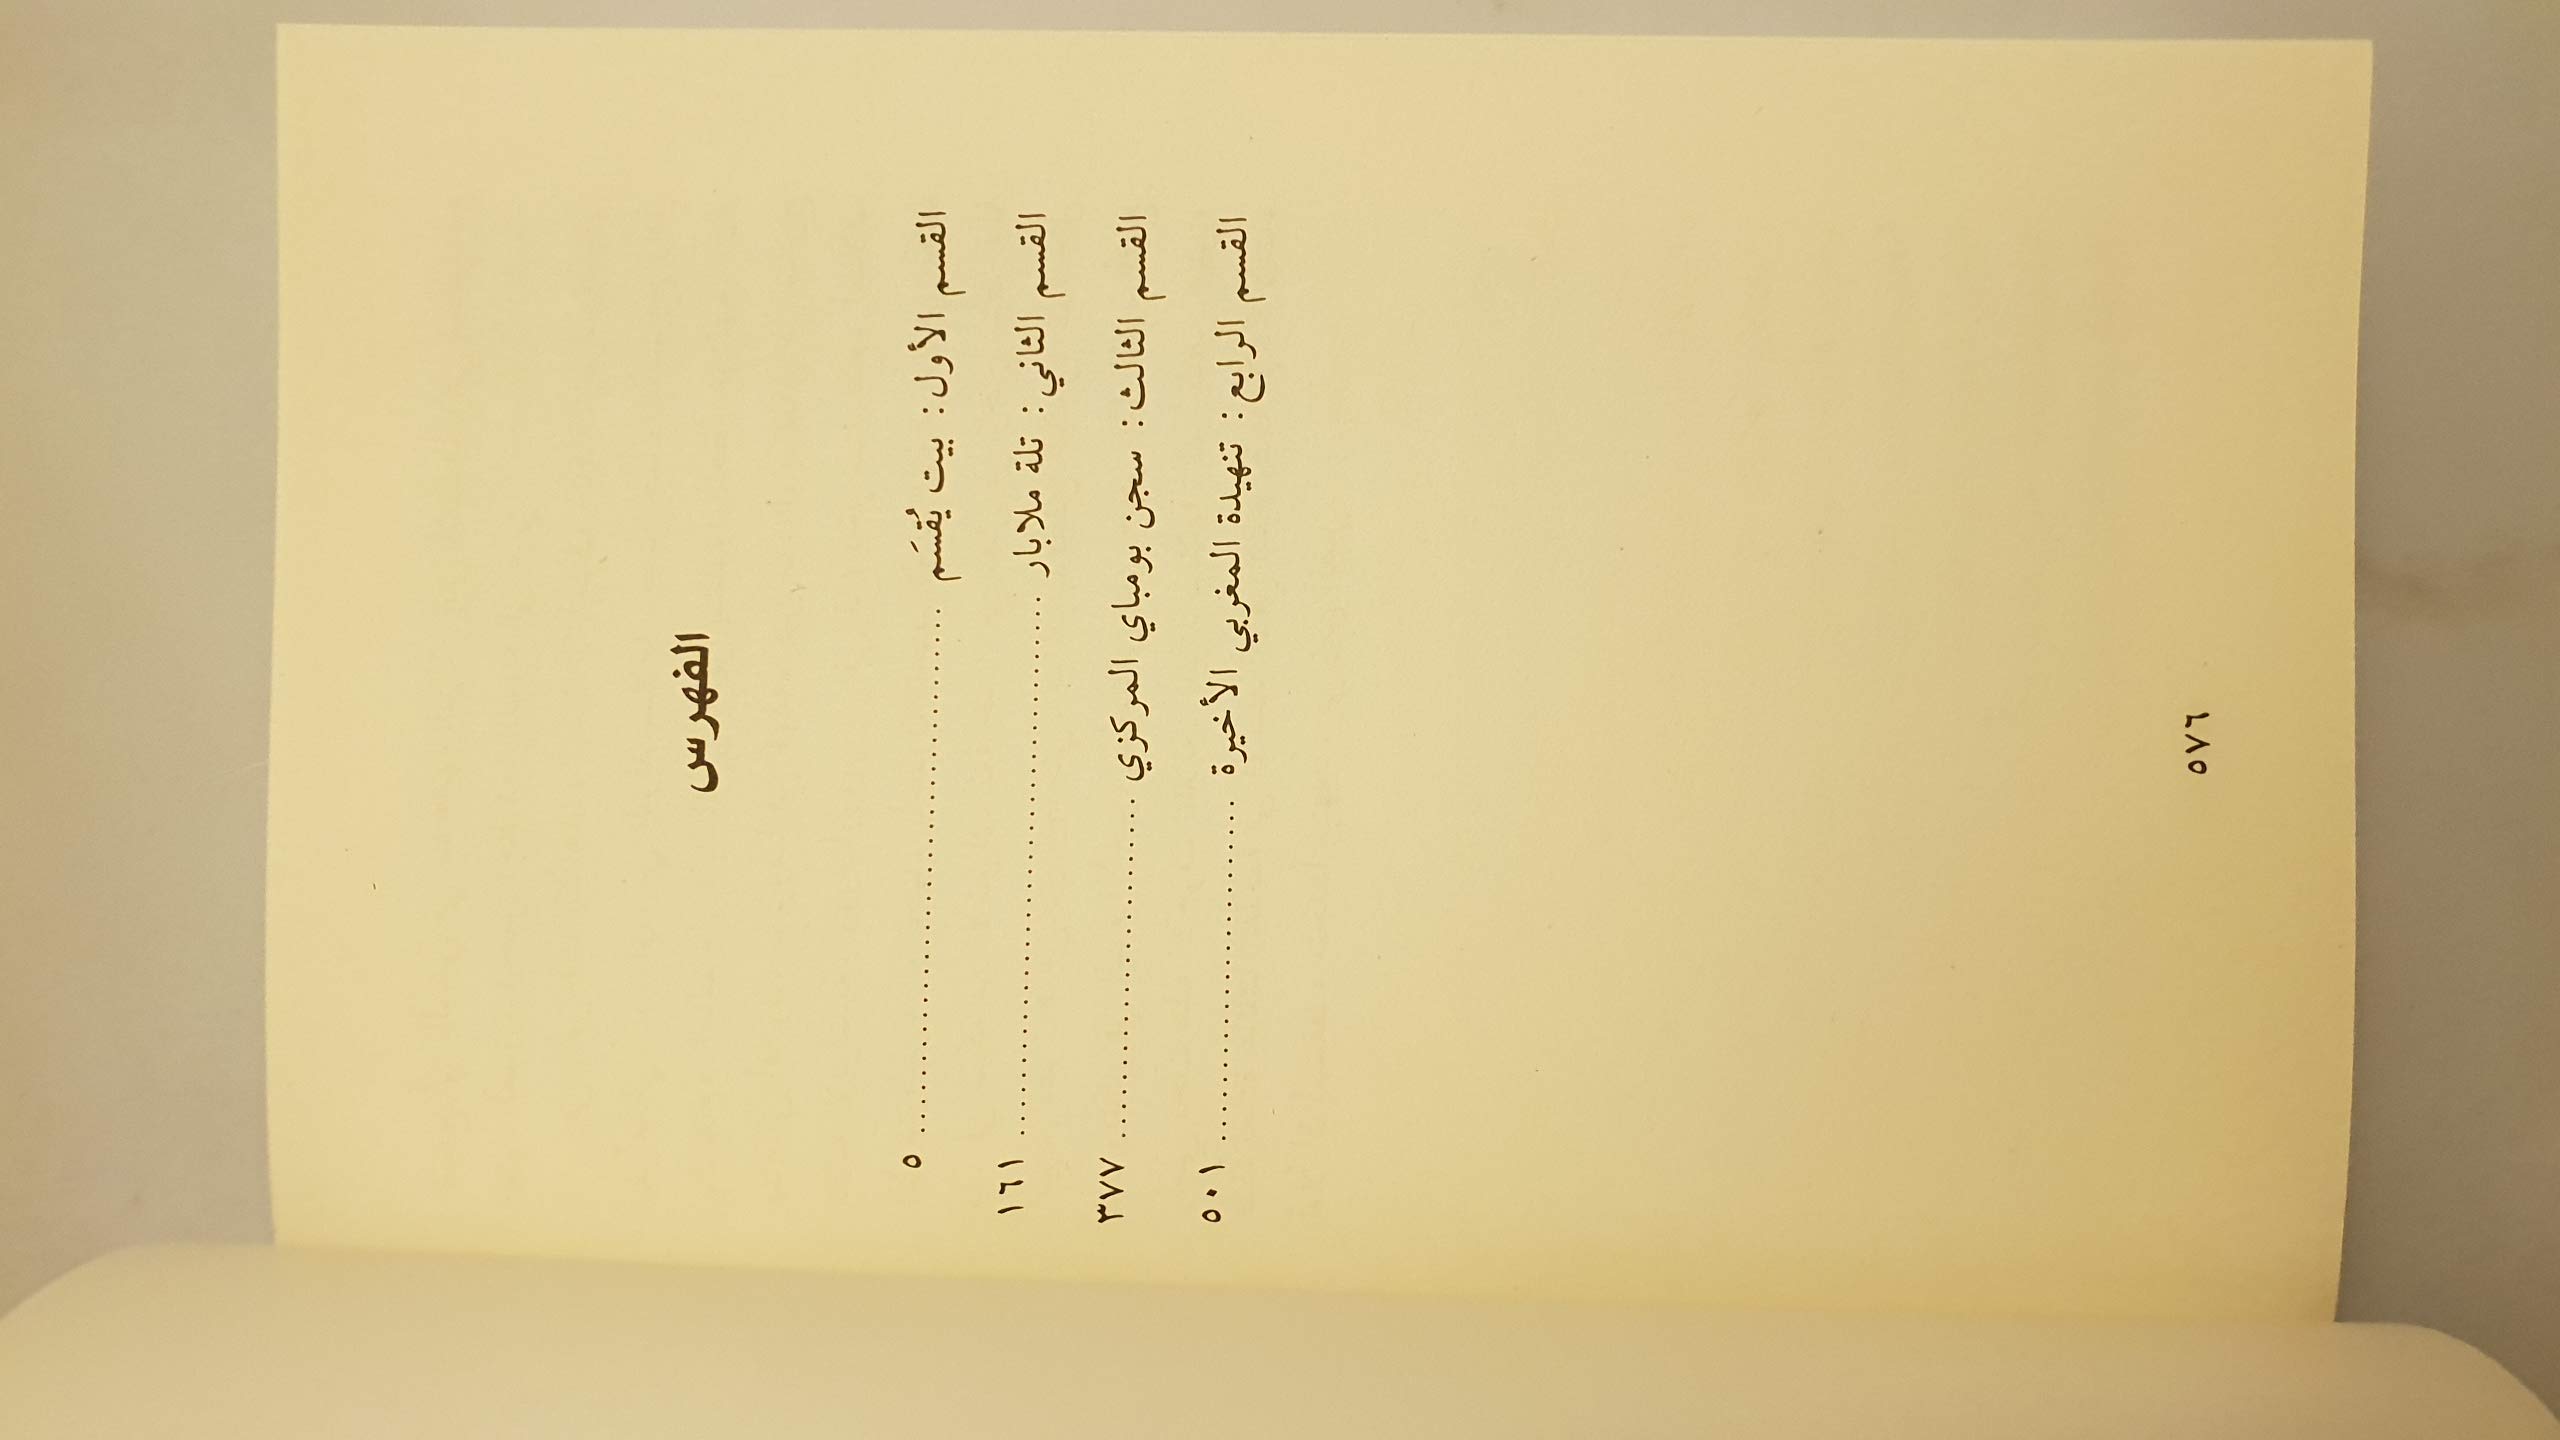 الفهرس
القسم الأول: بيت يُقسَم ........................................ ٥
القسم الثاني: تلة ملابار ........................................ ١٦١
القسم الثالث: سجن بومباي المركزي ........................ ٣٧٧
القسم الرابع: تنهيدة المغربي الأخيرة ........................ ٥٠١
٥٧٦